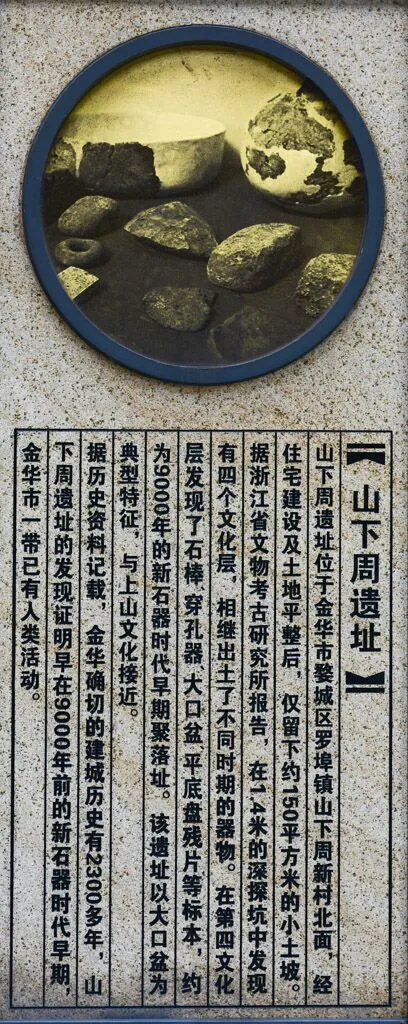 【山下周遗址】
山下周遗址位于金华市婺城区罗埠镇山下周新村北面，经
住宅建设及土地平整后，仅留下约150平方米的小土坡。
据浙江省文物考古研究所报告，在1.4米的深探坑中发现
有四个文化层，相继出土了不同时期的器物。在第四文化
层发现了石棒、穿孔器、大口盆、平底盘残片等标本，约
为9000年的新石器时代早期聚落址。该遗址以大口盆为
典型特征，与上山文化接近。
据历史资料记载，金华确切的建城历史有2300多年，山
下周遗址的发现证明早在9000年前的新石器时代早期，
金华市一带已有人类活动。